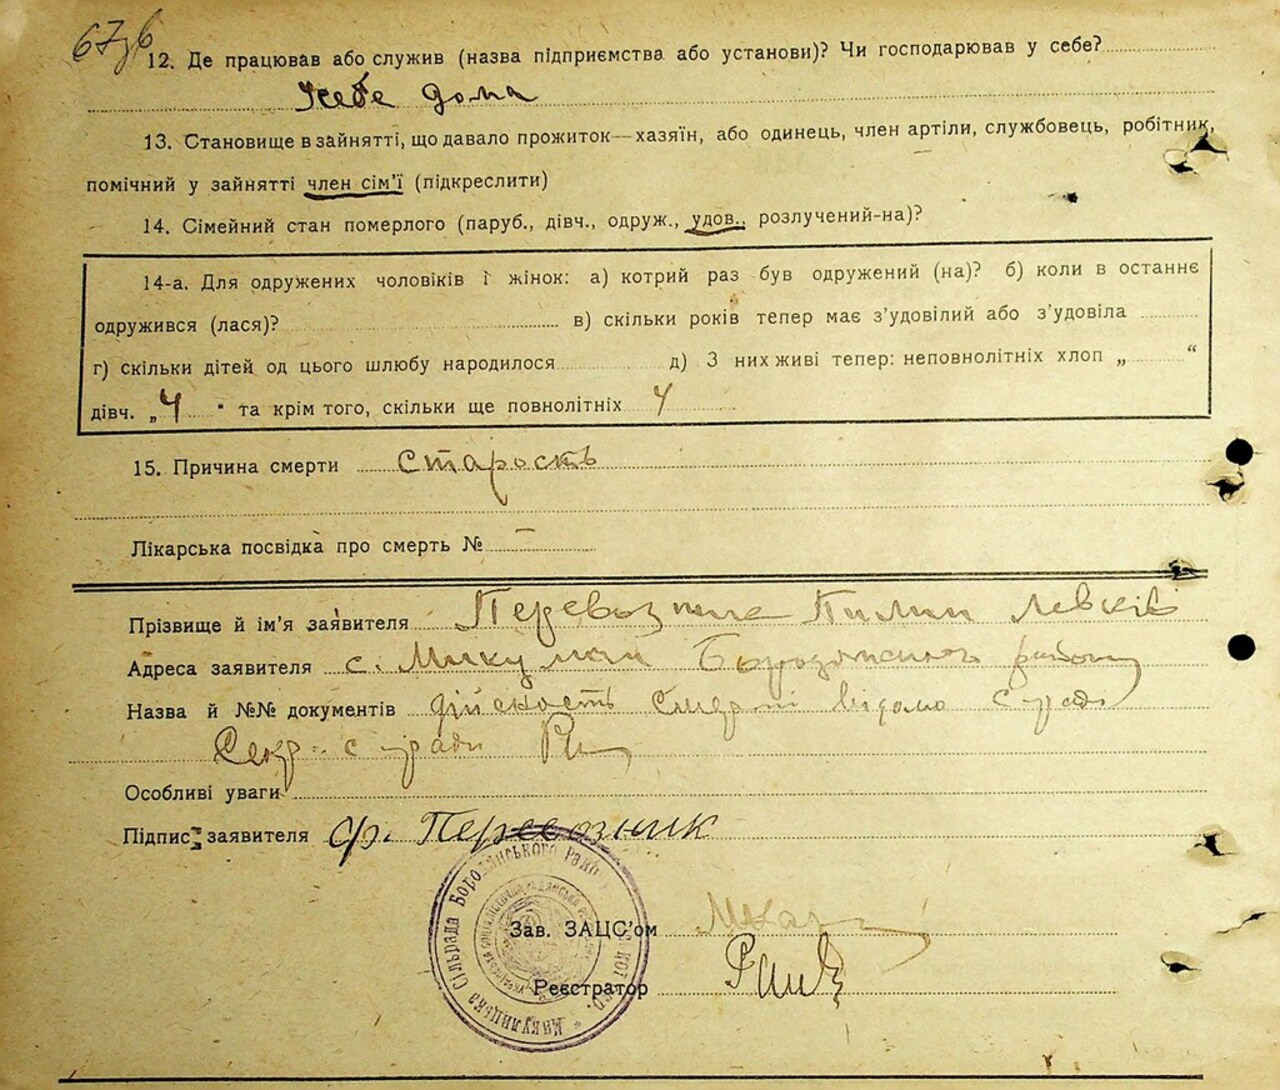 67зв
12. Де працював або служив (назва підприємства або установи)? Чи господарював у себе?
Усебе дома
13. Становище в зайнятті, що давало прожиток—хазяїн, або одинець, член артіли, службовець, робітник,
помічний у зайнятті член сім'ї (підкреслити)
14. Сімейний стан померлого (паруб., дівч., одруж., удов., розлучений-на)?
14-а. Для одружених чоловіків і жінок: а) котрий раз був одружений (на)? б) коли в останнє
одружився (лася)? в) скільки років тепер має з'удовілий або з'удовіла
г) скільки дітей од цього шлюбу народилося д) З них живі тепер: неповнолітніх хлоп „ “
дівч. „4 “ та крім того, скільки ще повнолітніх 4
15. Причина смерти Старость
Лікарська посвідка про смерть № —
Прізвище й ім'я заявителя Перевозник Пилип Левків
Адреса заявителя с. Микуличі Бородянського району
Назва й №№ документів дійсность смерті відомо с ради
Секр. с ради
Особливі уваги
Підпис заявителя Перевозник
Микулицька Сільрада Бородянського району
Зав. ЗАЦС'ом
Реєстратор